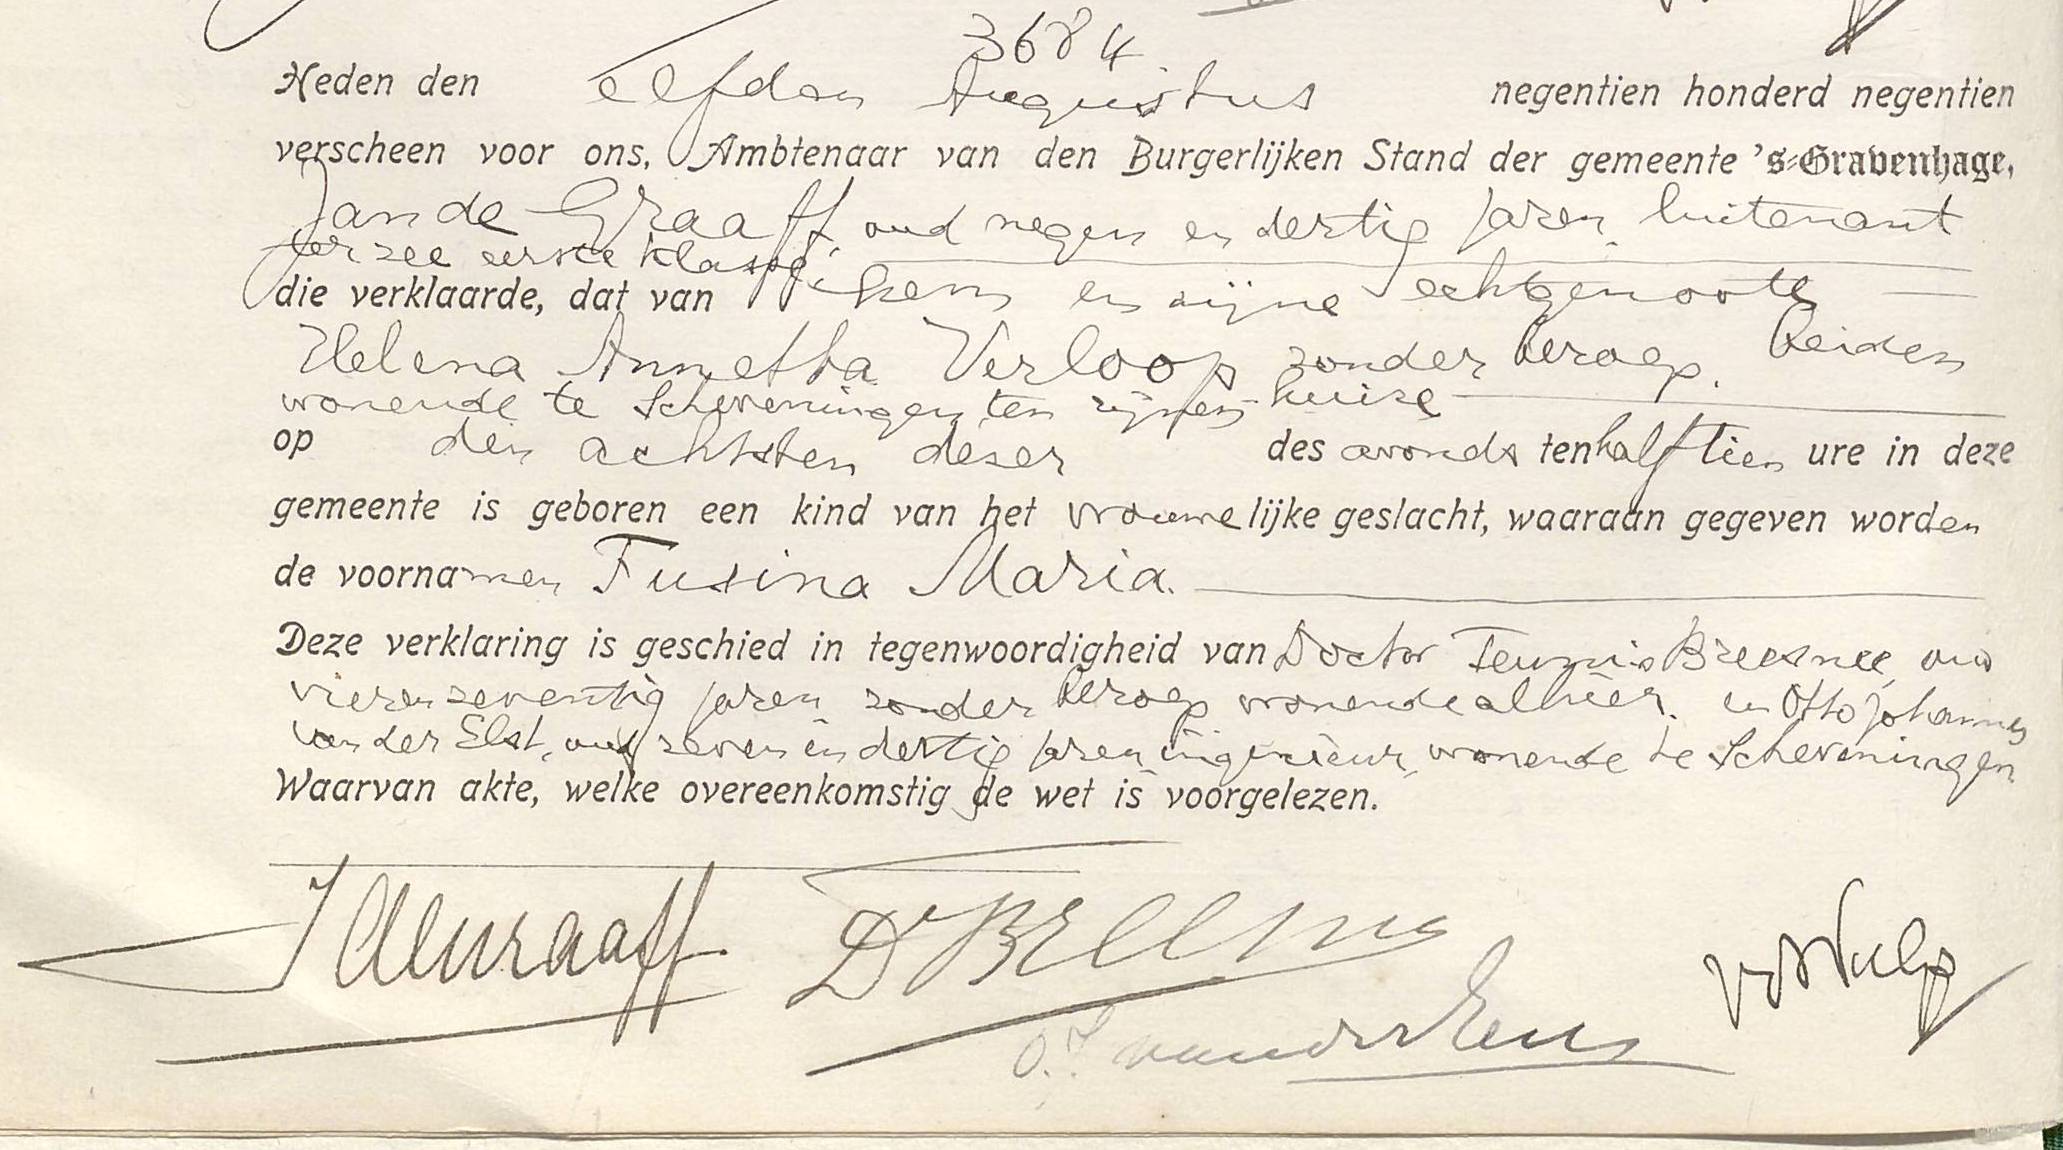 3684
Heden den elfden Augustus negentien honderd negentien
verscheen voor ons, Ambtenaar van den Burgerlijken Stand der gemeente 's-Gravenhage,
Jan de Graaff, oud negen en dertig jaren, luitenant
ter zee eerste klasse,
die verklaarde, dat van hem en zijne echtgenoote
Helena Annetha Verloop zonder beroep, beiden
wonende te Scheveningen, ten zijnen huize
op den achtsten dezer des avonds ten half tien ure in deze
gemeente is geboren een kind van het vrouwelijke geslacht, waaraan gegeven worden
de voornamen Fusina Maria.
Deze verklaring is geschied in tegenwoordigheid van Doctor Teunis oud
vierenzeventig jaren zonder beroep wonende alhier. en Otto Johannes
van der Elst, oud zeven en dertig jaren ingenieur, wonende te Scheveningen
Waarvan akte, welke overeenkomstig de wet is voorgelezen.
JdeGraaff Dr
O.J. van der